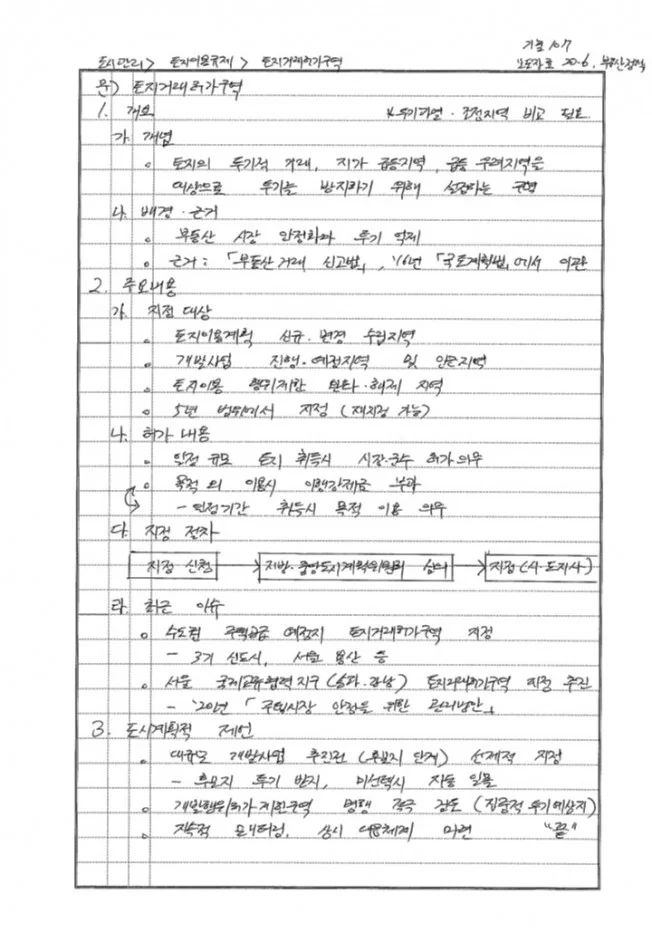 기출 107
도시관리 > 토지이용규제 > 토지거래허가구역
보도자료 20.6, 부동산정책
문) 토지거래허가구역
1. 개요 * 투기과열·조정지역 비교 필요
가. 개념
∘ 토지의 투기적 거래, 지가 급등지역, 급등 우려지역을
대상으로 투기를 방지하기 위해 설정하는 구역
나. 배경·근거
∘ 부동산 시장 안정화와 투기 억제
∘ 근거: 「부동산 거래 신고법」, '16년 「국토계획법」에서 이관
2. 주요내용
가. 지정 대상
∘ 토지이용계획 신규·변경 수립지역
∘ 개발사업 진행·예정지역 및 인근지역
∘ 토지이용 행위제한 완화·해제 지역
∘ 5년 범위에서 지정 (재지정 가능)
나. 허가 내용
∘ 일정 규모 토지 취득시 시장·군수 허가 의무
∘ 목적 외 이용시 이행강제금 부과
- 일정기간 취득시 목적 이용 의무
다. 지정 절차
지정 신청 → 지방·중앙도시계획위원회 심의 → 지정 (시·도지사)
라. 최근 이슈
∘ 수도권 주택공급 예정지 토지거래허가구역 지정
- 3기 신도시, 서울 용산 등
∘ 서울 국제교류협력지구 (송파·강남) 토지거래허가구역 지정 추진
- '20년 「주택시장 안정을 위한 관리방안」
3. 도시계획적 제언
∘ 대규모 개발사업 추진전 (후보지 단계) 선제적 지정
- 후보지 투기 방지, 미선택시 자동 일몰
∘ 개발행위허가 제한구역 병행 적극 검토 (집중적 투기예상지)
∘ 지속적 모니터링, 상시 대응체계 마련 "끝"